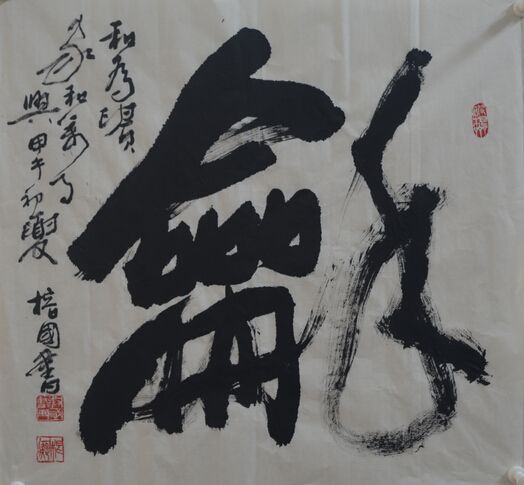 龢
和為貴
家和萬事
興甲午初夏
國書